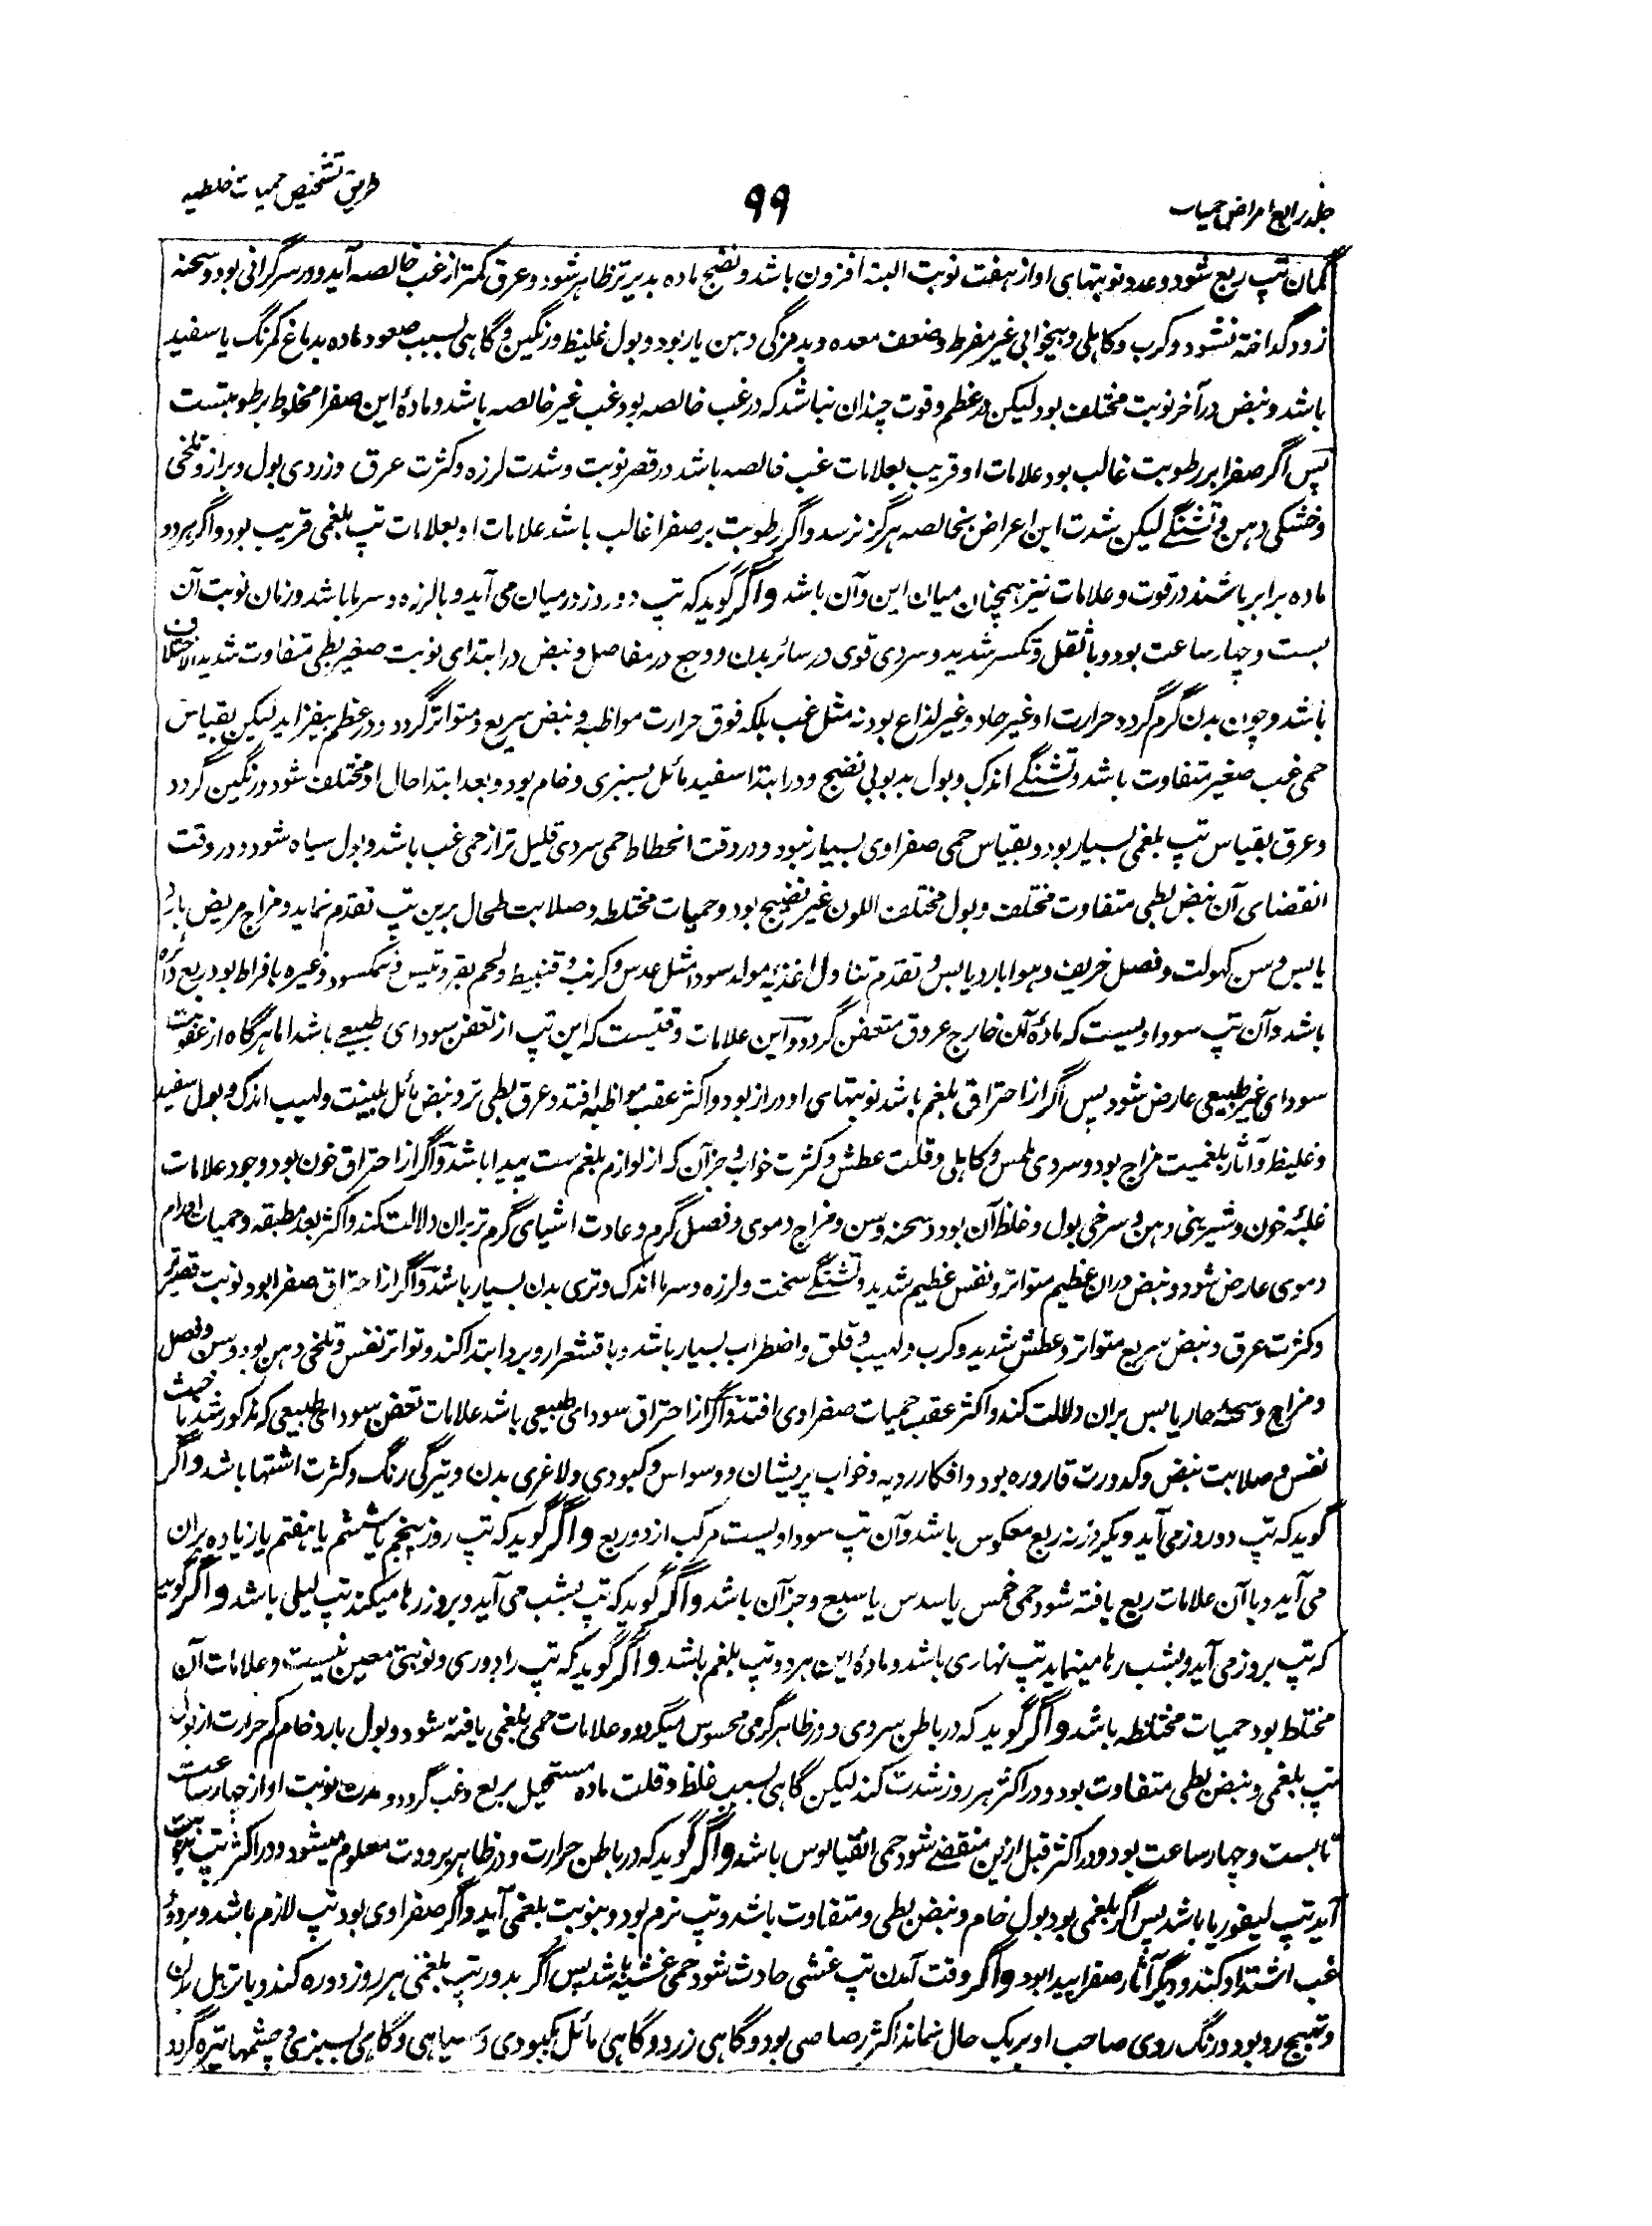 جلد رابع امراض حمیات
۹۹
طریق تشخیص حمیات خلطیہ
گمان تپ ربع شود و عدد نوبتهای او از هفت نوبت البته افزون باشد و نضج ماده بدیر تر ظاهر شود و عرق کمتر از غب خالصه آید و در سر گرانی بود و سحنه
زود گداخته نشود و کرب و کاهلی و بیخوابی غیر مفرط و ضعف معده و بدمزگی دهن یار بود و بول غلیظ و رنگین و گاهی بسبب صعود ماده بدماغ کمرنگ یا سفید
باشد و نبض در آخر نوبت مختلف بود لیکن در عظم و قوت چندان نباشد که در غب خالصه بود غب غیر خالصه باشد و مادهٔ این صفرا مخلوط برطوبتست
پس اگر صفرا بر رطوبت غالب بود علامات او قریب بعلامات غب خالصه باشد در قصر نوبت و شدت لرزه و کثرت عرق و زردی بول و براز و تلخی
و خشکی دهن و تشنگے لیکن شدت این اعراض بخالصه هرگز نرسد و اگر رطوبت بر صفرا غالب باشد علامات او بعلامات تپ بلغمی قریب بود و اگر هر دو
ماده برابر باشند در قوت و علامات نیز همچنان میان این و آن باشد و اگر گوید که تپ دو روز در میان می آید و بالرزه و سرما باشد و زمان نوبت آن
بست و چهار ساعت بود و با ثقل و تکسر شدید و سردی قوی در سائر بدن و وجع در مفاصل و نبض در ابتدای نوبت صغیر بطی متفاوت شدید الاختلاف
باشد و چون بدن گرم گردد حرارت او غیر حاد و غیر لذاع بود نه مثل غب بلکه فوق حرارت مواظبه و نبض سریع و متواتر گردد و در عظم بیفزاید لیکن بقیاس
حمی غب صغیر متفاوت باشد و تشنگے اندک و بول بد بو بی نضج و در ابتدا سفید مائل بسبزی و خام بود و بعد ابتدا حال او مختلف شود و رنگین گردد
و عرق بقیاس تپ بلغمی بسیار بود و بقیاس حمی صفراوی بسیار نبود و در وقت انحطاط حمی سردی قلیل تر از حمی غب باشد و بول سیاه شود و در وقت
انقضای آن نبض بطی متفاوت مختلف و بول مختلف اللون غیر نضیج بود و حمیات مختلطه و صلابت طحال برین تپ تقدم نماید و مزاج مریض بارد
یابس و سن کهولت و فصل خریف و هوا بارد یابس و تقدم تناول اغذیهٔ مولد سودا مثل عدس و کرنب و قنبیط و لحم بقر و تیس و نمکسود و غیره بافراط بود ربع دائره
باشد و آن تپ سوداویست که مادهٔ آن خارج عروق متعفن گردد و این علامات وقتیست که این تپ از تعفن سودای طبیعے باشد اما هرگاه از عفونت
سودای غیر طبیعی عارض شود پس اگر از احتراق بلغم باشد نوبتهای او دراز بود و اکثر عقب مواظبه افتد و عرق بطی تر و نبض مائل بلینت و لهیب اندک و بول سفید
و غلیظ و آثار بلغمیت مزاج بود و سردی ملمس و کاهلی و قلت عطش و کثرت خواب و جز آن که از لوازم بلغم ست پیدا باشد و اگر از احتراق خون بود وجود علامات
غلبهٔ خون و شیرینی دهن و سرخی بول و غلظ آن بود و سحنه و سن و مزاج دموی و فصل گرم و عادت اشیای گرم تر بران دلالت کند و اکثر بعد مطبقه و حمیات اورام
دموی عارض شود و نبض دران عظیم متواتر و نفس عظیم شدید و تشنگے سخت و لرزه و سرما اندک و تری بدن بسیار باشد و اگر از احتراق صفرا بود نوبت قصیر تر
و کثرت عرق و نبض سریع متواتر و عطش شدید و کرب و لهیب و قلق و اضطراب بسیار باشد و باقشعرار و برد ابتدا کند و تواتر نفس و تلخی دهن بود و سن و فصل
و مزاج و سحنه حار یابس بران دلالت کند و اکثر عقب حمیات صفراوی افتد و اگر از احتراق سودای طبیعی باشد علامات تعفن سودای طبیعی که مذکور شد با خبث
نفس و صلابت نبض و کدورت قاروره بود و افکار ردیه و خواب پریشان و وسواس و کبودی و لاغری بدن و تیرگی رنگ و کثرت اشتها باشد و اگر
گوید که تپ دو روز می آید و یکروز نه ربع معکوس باشد و آن تپ سوداویست مرکب از دو ربع و اگر گوید که تپ روز پنجم یا ششم یا هفتم یا زیاده بران
می آید و با آن علامات ربع یافته شود حمی خمس یا سدس یا سبع و جز آن باشد و اگر گوید که تپ بشب می آید و بروز رها میکند تپ لیلی باشد و اگر گوید
که تپ بروز می آید و بشب رها مینماید تپ نهاری باشد و مادهٔ این هر دو تپ بلغم باشد و اگر گوید که تپ را دوری و نوبتی معین نیست و علامات آن
مختلط بود حمیات مختلطه باشد و اگر گوید که در باطن سردی و در ظاهر گرمی محسوس میگردد و علامات حمی بلغمی یافته شود و بول بارد خام کم حرارت از بول
تپ بلغمی و نبض بطی متفاوت بود و در اکثر هر روز شدت کند لیکن گاهی بسبب غلظ و قلت ماده مستحیل بربع و غب گردد و مدت نوبت او از چهار ساعت
تا بست و چهار ساعت بود و در اکثر قبل ازین منقضے شود حمی انقیالوس باشد و اگر گوید که در باطن حرارت و در ظاهر برودت معلوم میشود و در اکثر تپ بنوبت
آید تپ لیفوریا باشد پس اگر بلغمی بود بول خام و نبض بطی و متفاوت باشد و تپ نرم بود و بنوبت بلغمی آید و اگر صفراوی بود تپ لازم باشد و بر دور
غب اشتداد کند و دیگر آثار صفرا پیدا بود و اگر وقت آمدن تپ غشی حادث شود حمی غشییه باشد پس اگر بدور تپ بلغمی هر روز دوره کند و با ترهل بدن
و تهبج رو بود و رنگ روی صاحب او بریک حال نماند اکثر رصاصی بود و گاهی زرد و گاهی مائل بکبودی و سیاهی و گاهی بسبزی و چشمها تیره گردد